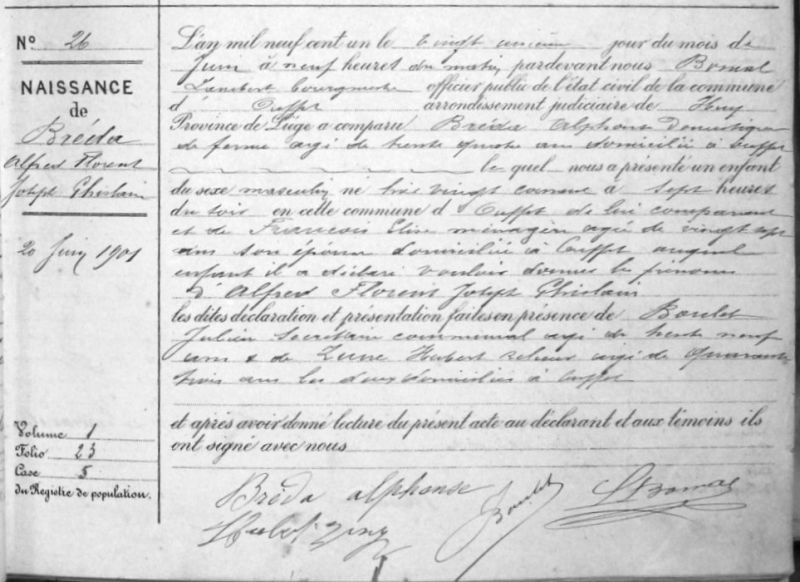 N° 26
NAISSANCE
de
Bréda
Alfred Florent
Joseph Ghislain
20 Juin 1901
Volume 1
Folio 23
Case 5
du Registre de population.
L'an mil neuf cent un le vingt unième jour du mois de
Juin à neuf heures du matin pardevant nous Bomal
Lambert bourgmestre officier public de l'état civil de la commune
d' Ouffet arrondissement judiciaire de Huy
Province de Liége a comparu Bréda Alphonse Domestique
de ferme agé de trente quatre ans domicilié à Ouffet
le quel nous a présenté un enfant
du sexe masculin né le vingt courant à sept heures
du soir en cette commune d' Ouffet de lui comparant
et de François Elise ménagère agée de vingt sept
ans son épouse domiciliée à Ouffet auquel
enfant il a déclaré vouloir donner les prénoms
d' Alfred Florent Joseph Ghislain
les dites déclaration et présentation faites en présence de Boulet
Julien Secrétaire communal agé de trente neuf
ans & de Hubert agé de quarante
trois ans les deux domiciliés à Ouffet
et après avoir donné lecture du présent acte au déclarant et aux témoins ils
ont signé avec nous
Bréda alphonse
Boulet
LBomal
Hubert